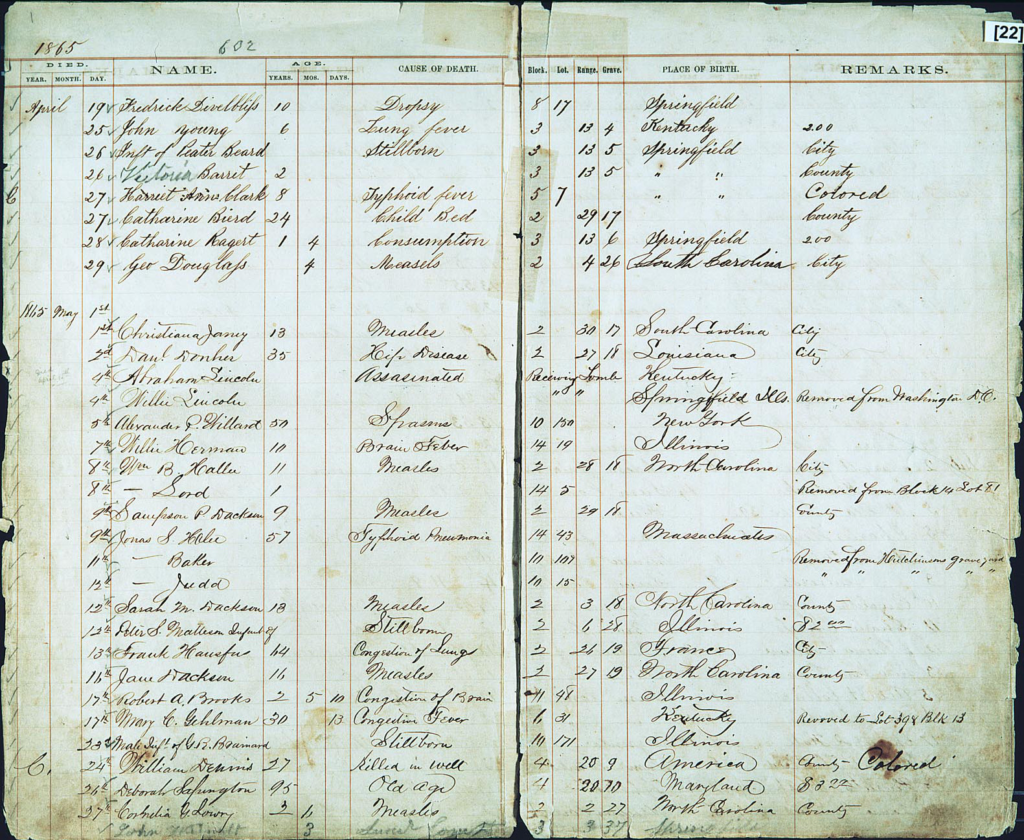 [22]
1865 602
DIED. AGE.
YEAR. MONTH. DAY. NAME. YEARS. MOS. DAYS. CAUSE OF DEATH. Block. Lot. Range. Grave. PLACE OF BIRTH. REMARKS.
April 19 Fredrick Divelbliss 10 Dropsy 8 17 Springfield
25 John Young 6 Lung fever 3 13 4 Kentucky 2.00
26 Inft of Peater Beard Stillborn 3 13 5 Springfield City
26 Victoria Barrit 2 3 13 5 " " County
C 27 Harriet Ann Clark 8 Typhoid fever 5 7 " " Colored
27 Catharine Bird 24 Child Bed 2 29 17 County
28 Catharine Ragert 1 4 Consumption 3 13 6 Springfield 2.00
29 Geo Douglass 4 Measels 2 4 26 South Carolina City
1865 May 1st
1st Christiana Janey 13 Measles 2 30 17 South Carolina City
2d Danl Donher 35 Hip Disease 2 27 18 Louisiana City
4th Abraham Lincoln Assasinated Receiving Tomb Kentucky
4th Willie Lincoln " " Springfield Ills. Removed from Washington D.C.
5th Alexander P. Willard 50 Spasms 10 130 New York
7th Willie Herman 10 Brain Fever 14 19 Illinois
8th Wm B. Hallie 11 Measles 2 28 18 North Carolina City
8th — Lord 1 14 5 Removed from Block 14 Lot 81
9th Sampson P Dackson 9 Measles 2 29 18 County
9th Jonas S. 57 Typhoid Pneumonia 14 43 Massachusates
11th — Baker 10 107 Removed from Hutchinsons grave yard
12 — Judd 10 15 " " " "
12th Sarah M. Dackson 13 Measles 2 3 18 North Carolina County
12th Peter S. Matteson Infant of Stillborn 2 6 28 Illinois $2.00
13th Frank Hausfus 44 Congestion of Lungs 2 26 19 France City
16th Jane Dackson 16 Measles 2 27 19 North Carolina County
17th Robert A. Brooks 2 5 10 Congestion of Brain 11 48 Illinois
17th Mary C. Gehlman 30 13 Congestive Fever 6 31 Kentucky Revoved to Lot 39 Blk 13
23d Male Inft. of G.B. Stillborn 10 171 Illinois
C. 24th William Dennis 27 Killed in well 4 20 9 America County Colored
26th Deborah 95 Old age 4 20 10 Maryland
27th Cornelia G Lowry 2 Measles 2 2 27 North Carolina County
John 3 3 3 37 Springfield